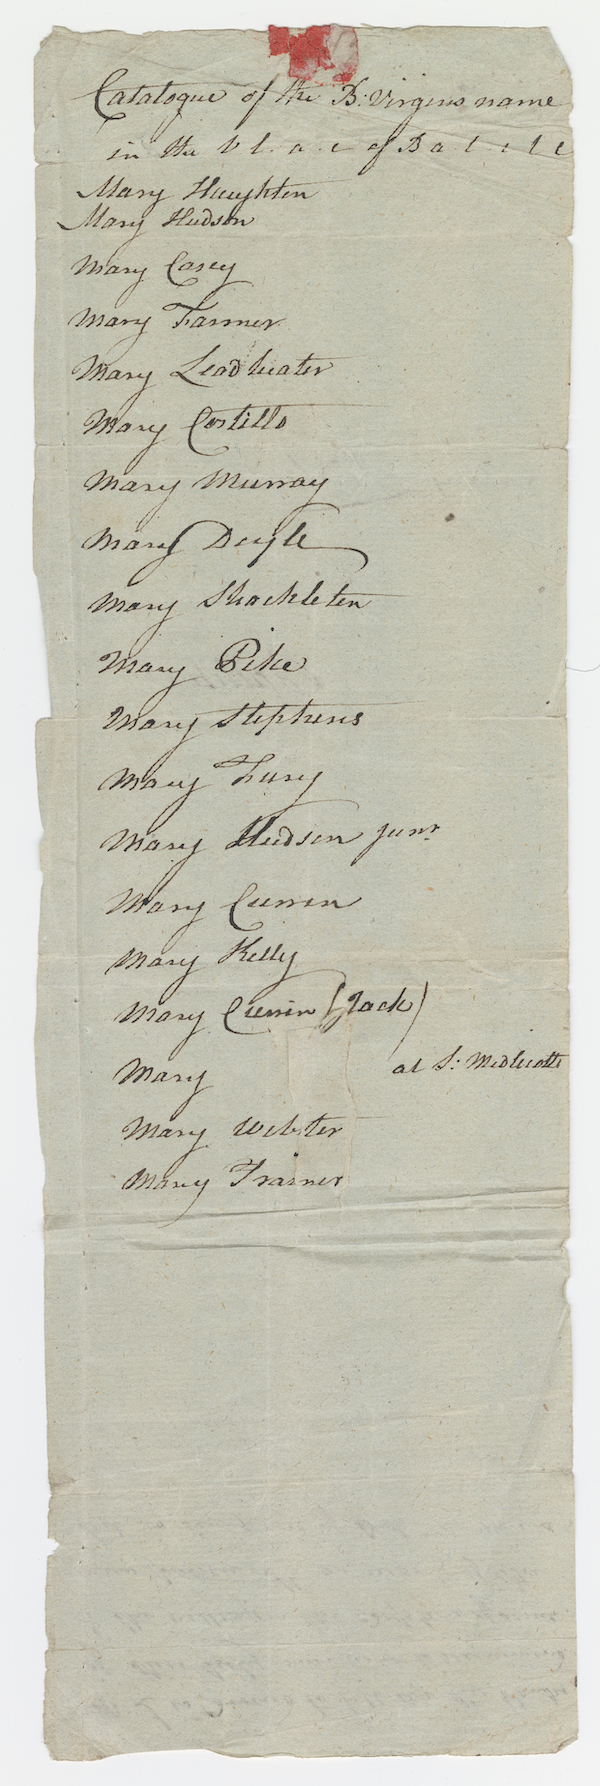 Catalogue of the B: Virgins name
in the V l. a. e of B a l. i t e
Mary Haughton
Mary Hudson
Mary Casey
Mary Farmer
Mary Leadbeater
Mary Costillo
Mary Murray
Mary Doyle
Mary Shackleton
Mary Pike
Mary Stephens
Mary Fury
Mary Hudson junr
Mary Curren
Mary Kelly
Mary Currin (Jack)
Mary at S: Medlicotts
Mary Webster
Mary Trainer